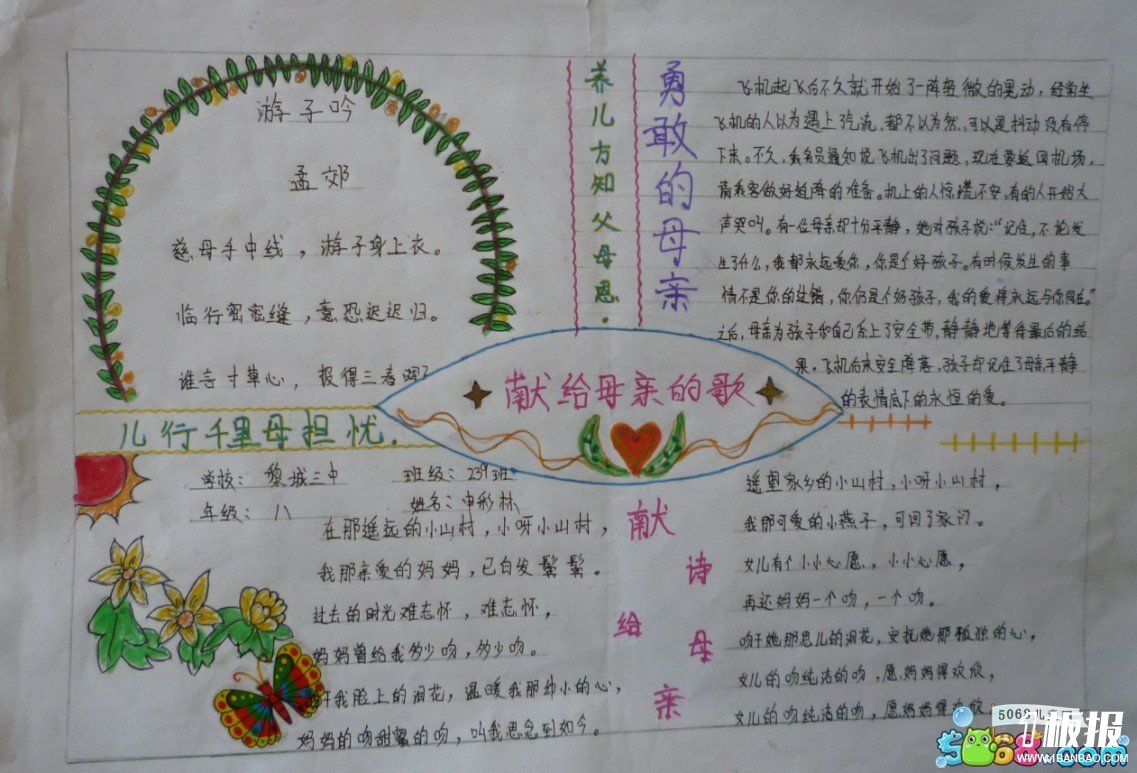 游子吟
孟郊
慈母手中线，游子身上衣。
临行密密缝，意恐迟迟归。
谁言寸草心，报得三春晖？
养儿方知父母恩.
勇敢的母亲
飞机起飞后不久就开始了一阵轻微的晃动，经常坐
飞机的人以为遇上了气流，都不以为然，可以是抖动没有停
下来。不久，乘务员通知说飞机出了问题，现在要返回机场，
请乘客做好迫降的准备。机上的人惊慌不安，有的人开始大
声哭叫。有一位母亲却十分平静，她对孩子说："记住，不论发
生了什么，我都永远爱你，你是个好孩子。有时候发生的事
情不是你的过错，你仍是个好孩子，我的爱将永远与你同在。"
之后，母亲为孩子和自己系上了安全带，静静地等待最后的结
果。飞机后来安全降落，孩子却记住了母亲平静
的表情底下的永恒的爱。
献给母亲的歌
儿行千里母担忧.
学校：黎城三中 班级：239班
年级：八 姓名：申彩林
在那遥远的小山村，小呀小山村，
我那亲爱的妈妈，已白发鬓鬓。
过去的时光难忘怀，难忘怀，
妈妈曾给我多少吻，多少吻。
吻干我脸上的泪花，温暖我那幼小的心，
妈妈的吻甜蜜的吻，叫我思念到如今。
献诗给母亲
遥望家乡的小山村，小呀小山村，
我那可爱的小燕子，可回了家门。
女儿有个小小心愿，小小心愿，
再还妈妈一个吻，一个吻。
吻干她那思儿的泪花，安抚她那孤独的心，
女儿的吻纯洁的吻，愿妈妈得欢欣，
女儿的吻纯洁的吻，愿妈妈得欢欣
5068儿
5068.com
板报
WWW.1BANBAO.COM